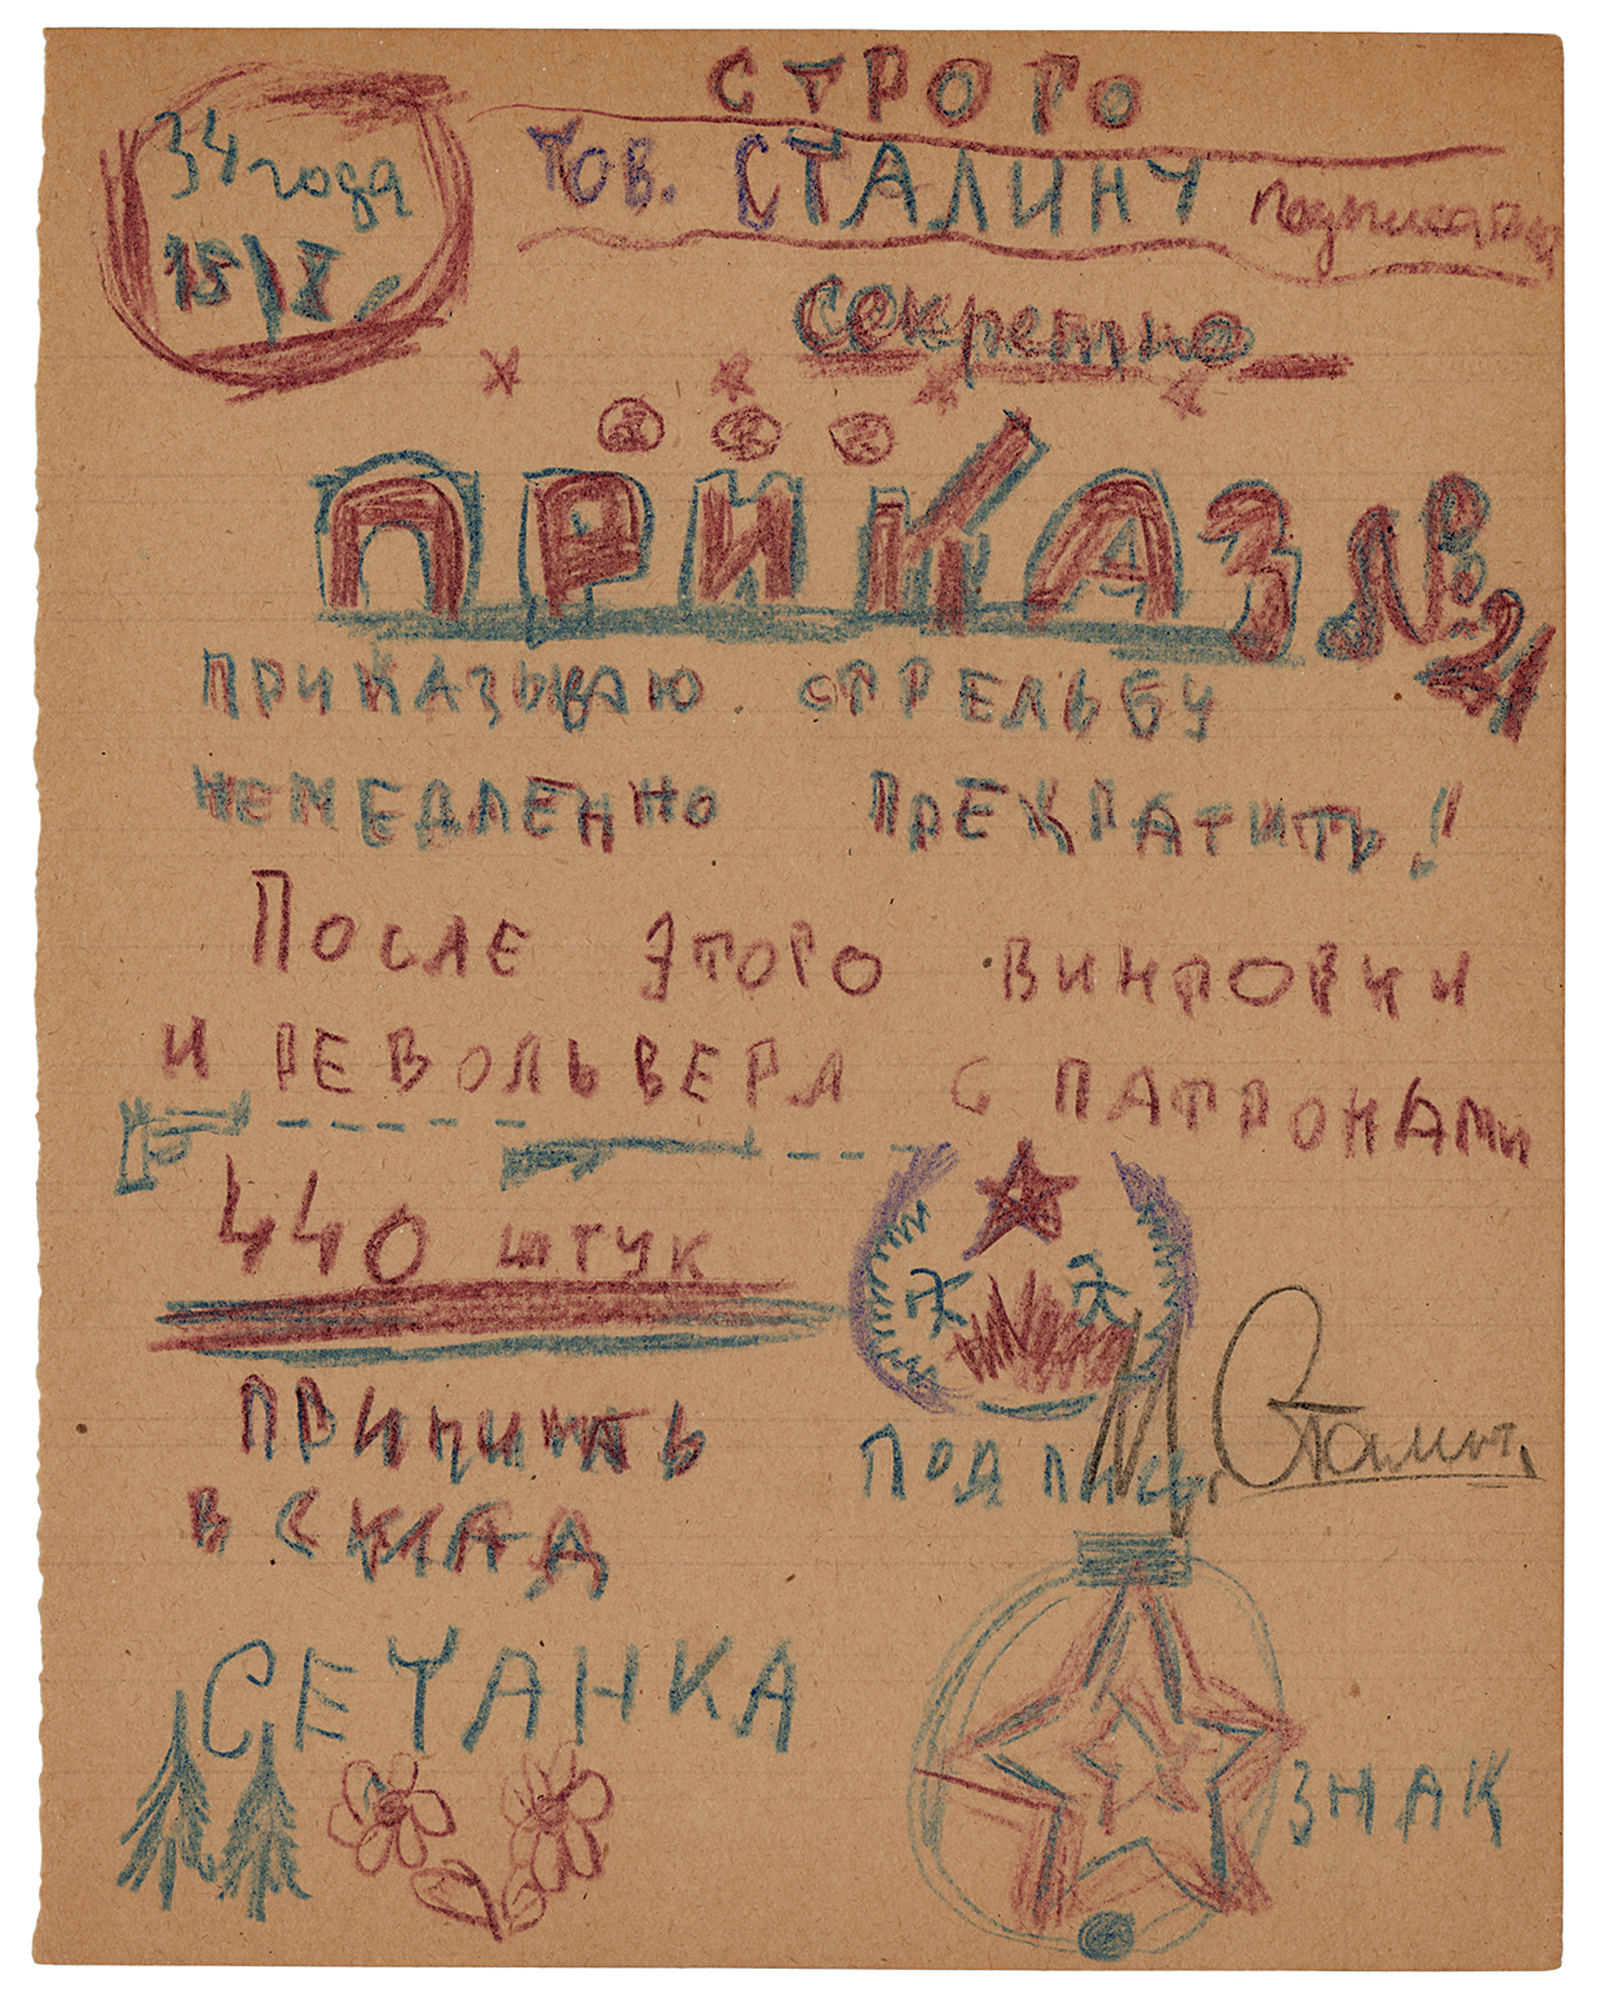 СТРОГО
34 года
тов. СТАЛИНУ
подписать
15/X
Секретно
ПРИКАЗ № 21
ПРИКАЗЫВАЮ СТРЕЛЬБУ
НЕМЕДЛЕННО ПРЕКРАТИТЬ!!
ПОСЛЕ ЭТОГО ВИНТОВКИ
И РЕВОЛЬВЕРА С ПАТРОНАМИ
440 ШТУК
В СКЛАД
ПОДПИСЬ.
И Сталин.
СЕТАНКА
ЗНАК